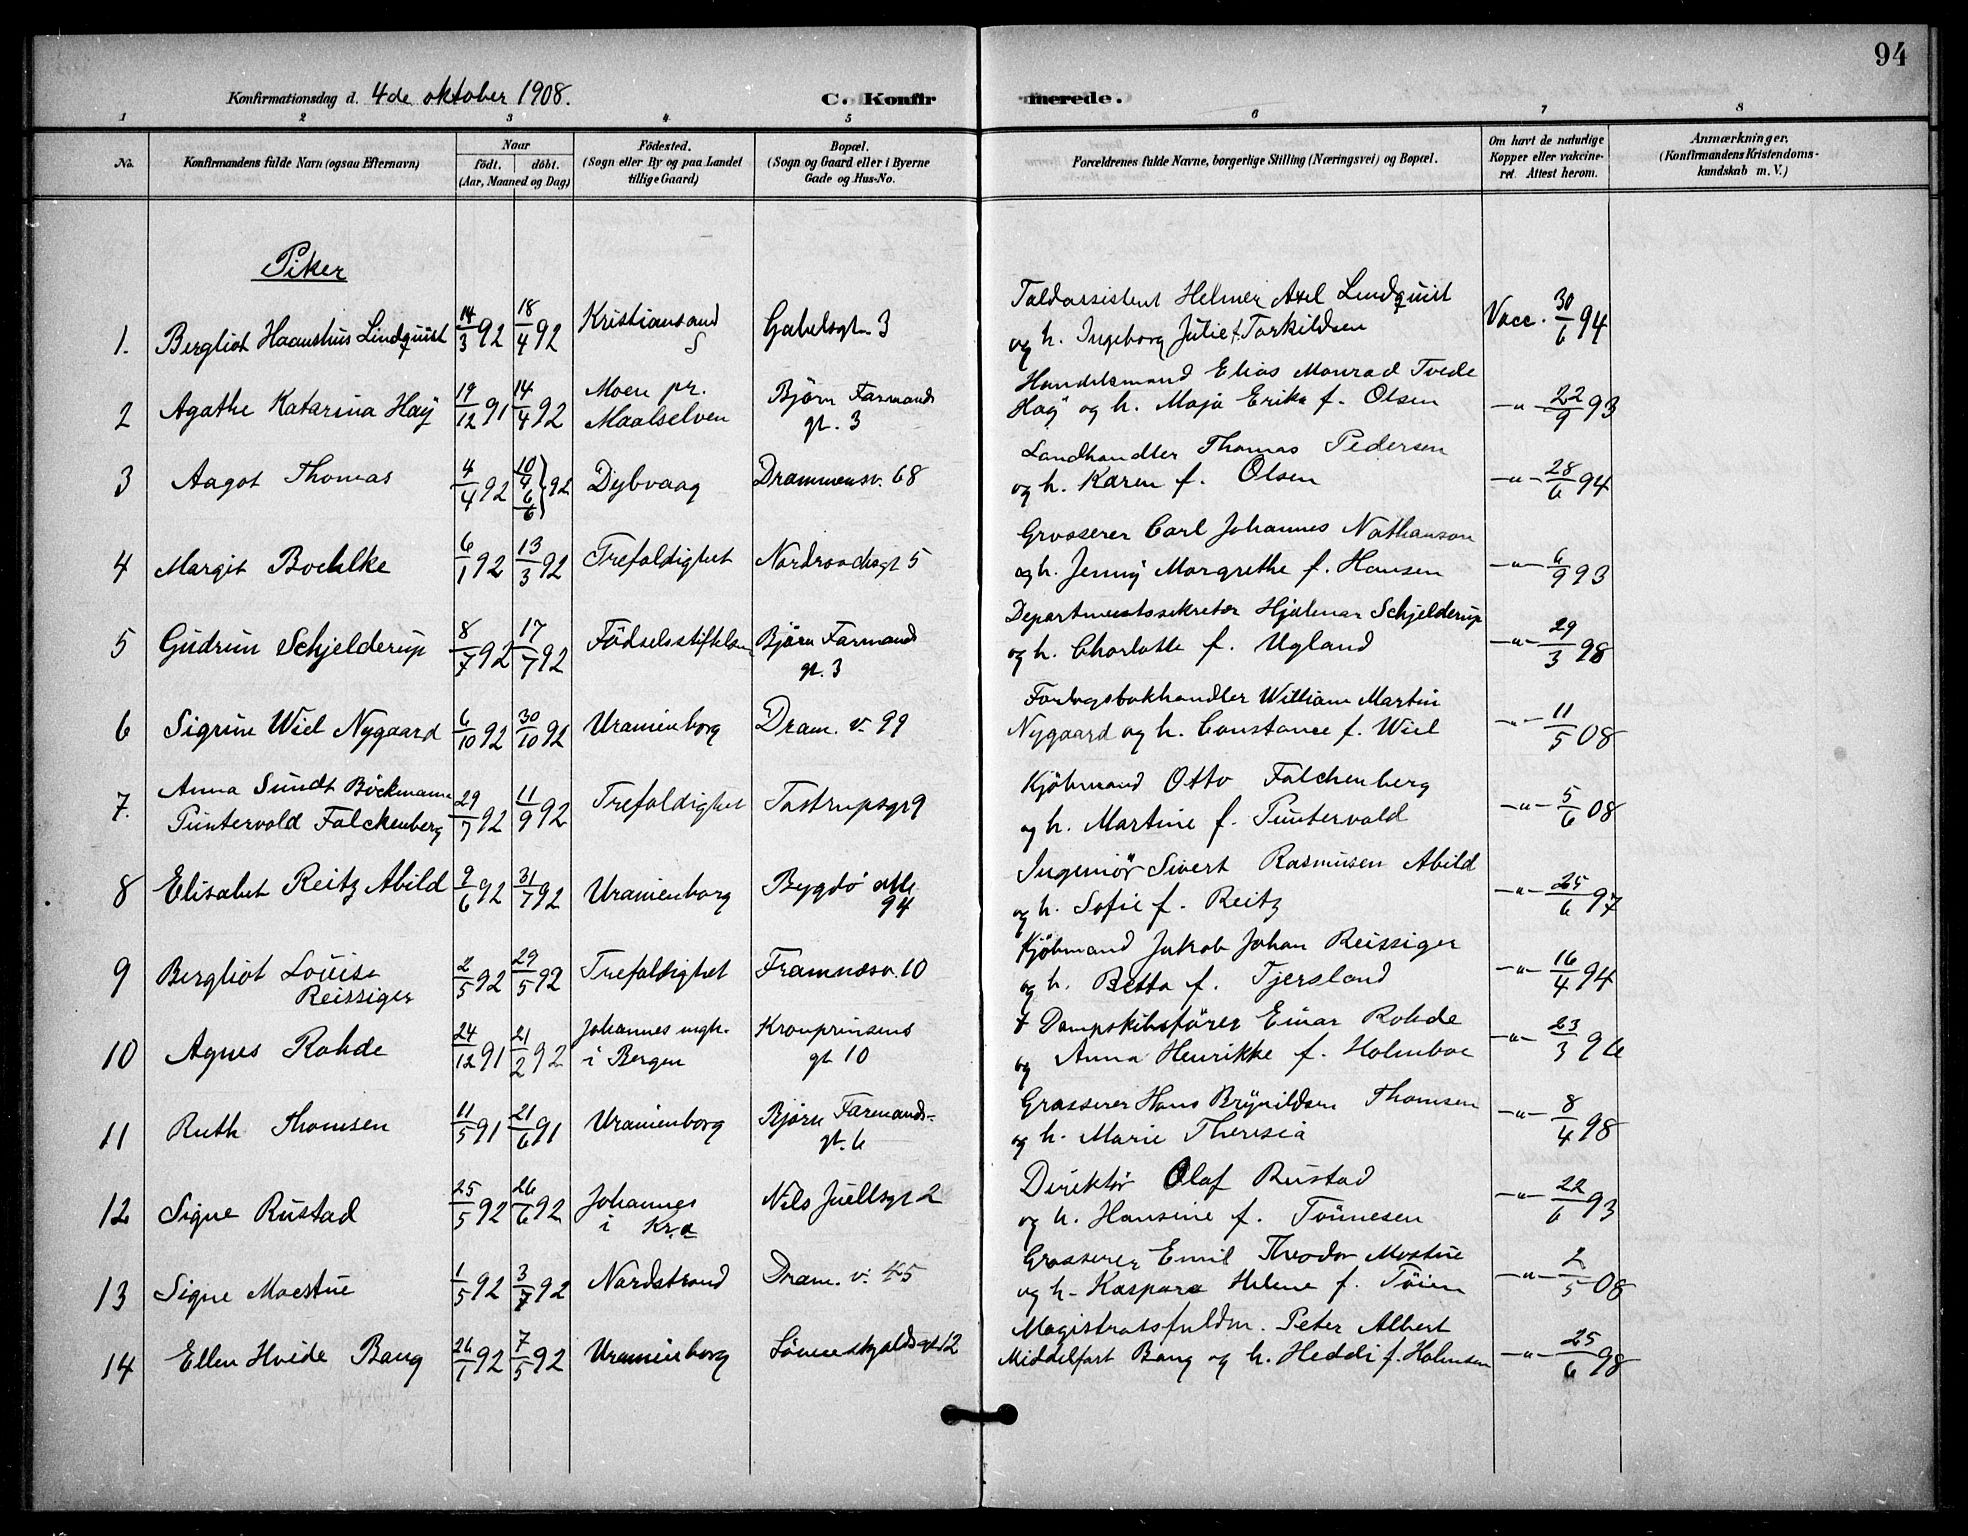 94
Konfirmationsdag d. 4de oktober 1908.
C. Konfirmerede.
1 2 3 4 5 6 7 8
No. Konfirmandens fulde Navn (ogsaa Efternavn) Naar født. døbt. (Aar, Maaned og Dag) Fødested. (Sogn eller By og paa Landet tillige Gaard) Bopæl. (Sogn og Gaard eller i Byerne Gade og Hus-No. Forældrenes fulde Navne, borgerlige Stilling (Næringsvei) og Bopæl. Om havt de naturlige Kopper eller vakcineret. Attest herom. Anmærkninger. (Konfirmandens Kristendomskundskab m. V.)
Piker
1. Bergliot Haanshus Lindquist 14/3 92 18/4 92 Kristiansand S Gabelsgt. 3 Toldassistent Helmer Axel Lindquist
og h. Ingeborg Julie f. Torkildsen Vacc. 30/6 94
2 Agathe Katarina Høÿ 19/12 91 14/4 92 Moen pr. Maalselven Björn Farmands gt. 3 Handelsmand Elias Monrad Tvede
Høÿ og h. Maja Erika f. Olsen —"— 22/9 93
3 Aagot Thomas 4/4 92 10/4 6/6 } 92 Dybvaag Drammensv. 68 Landhandler Thomas Pedersen
og h. Karen f. Olsen —"— 28/6 94
4 Margit Boehlke 6/1 92 13/3 92 Trefoldighet Nordraachsgt 5 Grosserer Carl Johannes Nathanson
og h. Jenny Margrethe f. Hansen —"— 6/9 93
5 Gudrun Schjelderup 8/7 92 17/7 92 Födselsstiftelsen Björn Farmands gt. 3 Departmentssekretær Hjalmar Schjelderup
og h. Charlotte f. Ugland —"— 29/3 98
6 Sigrun Wiel Nygaard 6/10 92 30/10 92 Uranienborg Dram. v. 99 Forlagsbokhandler William Martin
Nygaard og h. Constance f. Wiel —"— 11/5 08
7. Anna Sundt Böckmann
Puntervold Falckenberg 29/7 92 11/9 92 Trefoldighet Tostrupsgt 9 Kjöbmand Otto Falchenberg
og h. Martine f. Puntervold —"— 5/6 08
8 Elisabet Reitz Abild 9/6 92 31/7 92 Uranienborg Bygdö alle 94 Ingeniör Sivert Rasmusen Abild
og h. Sofie f. Reitz —"— 25/6 97
9 Bergliot Louise
Reissiger 2/5 92 29/5 92 Trefoldighet Framnæsv. 10 Kjöbmand Jakob Johan Reissiger
og h. Betta f. Tjersland —"— 16/4 94
10 Agnes Rohde 24/12 91 21/2 92 Johannes mgh. i Bergen Kronprinsens gt 10 † Dampskibsförer Einar Rohde
og Anna Henrikke f. Holmboe —"— 23/3 96
11 Ruth Thomsen 11/5 91 21/6 91 Uranienborg Björn Farmands- gt. 6 Grosserer Hans Brynildsen Thomsen
og h. Marie Theresia —"— 8/4 98
12 Signe Rustad 25/5 92 26/6 92 Johannes i Kr.a Nils Juellsgt 2 Direktör Olaf Rustad
og h. Hansine f. Tönnesen —"— 22/6 93
13 Signe Moestue 1/5 92 3/7 92 Nordstrand Dram. v. 45 Grosserer Emil Theodor Mostue
og h. Kaspara Helene f. Töien —"— 2/5 08
14 Ellen Hvide Bang 26/1 92 7/5 92 Uranienborg Magistratsfuldm. Peter Albert
Middelfart Bang og h. Heddi f. Holmsen —"— 25/6 98